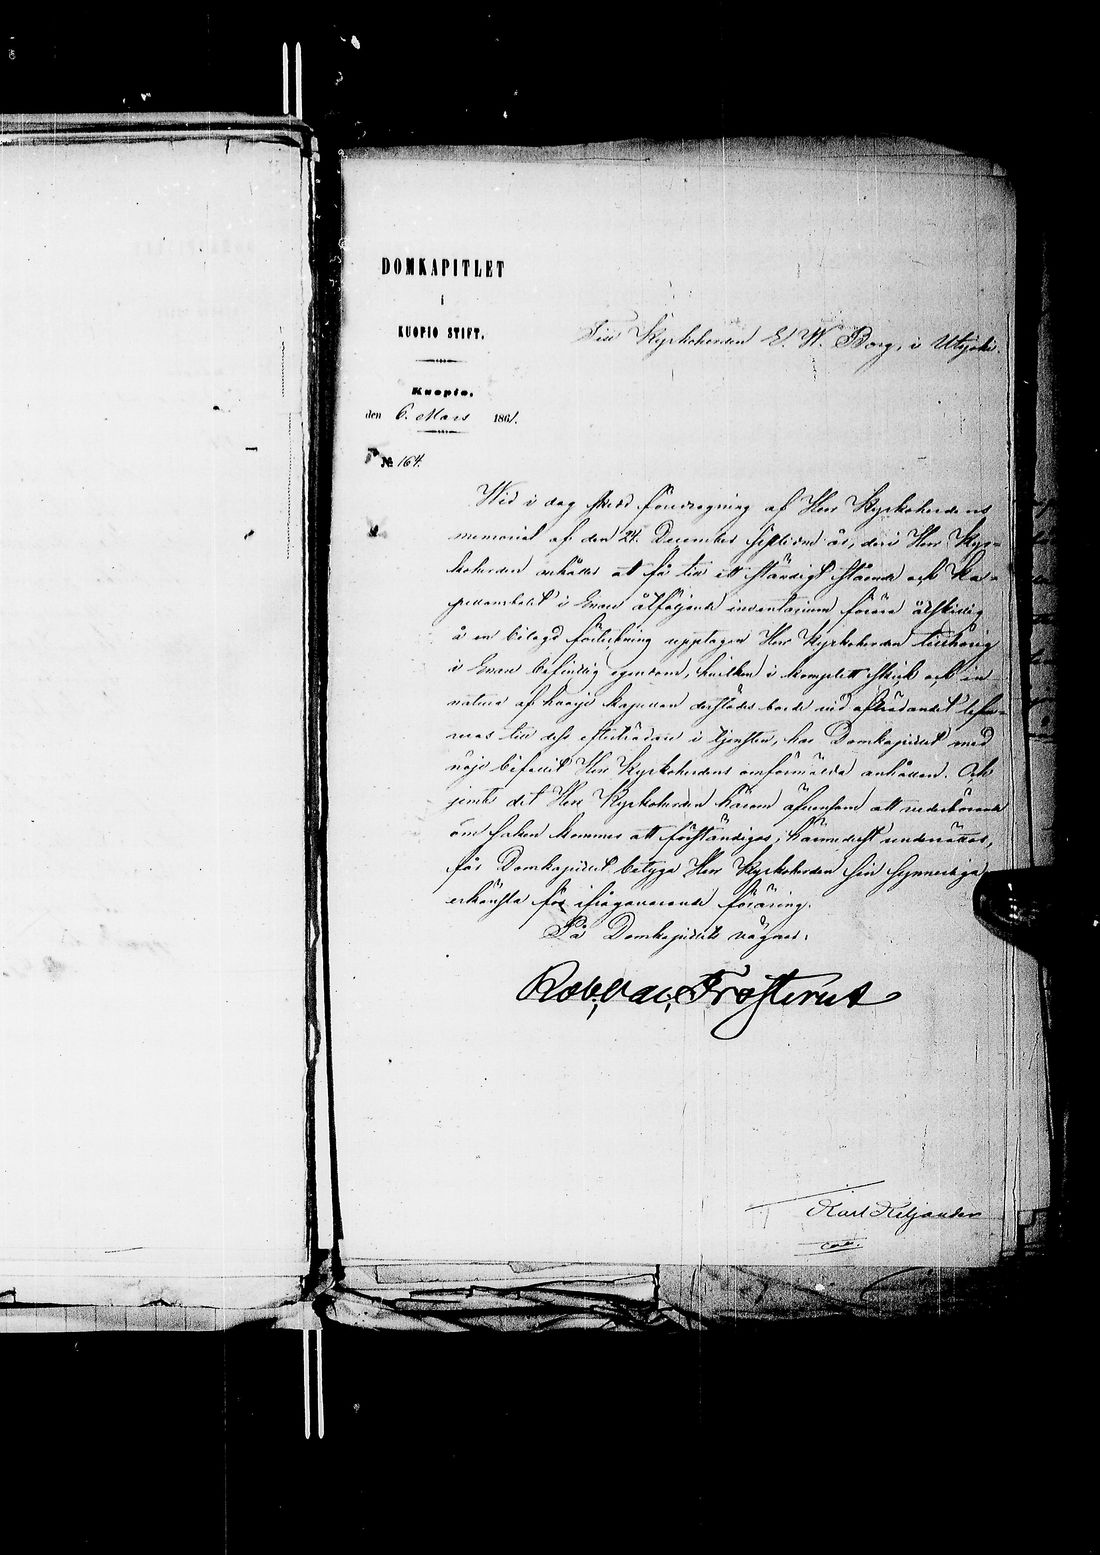 DOMKAPITLET
i
KUOPIO STIFT.
Kuopio,
den 6. Mars 1861.
№ 164.
Till Kyrkoherden E. W. Borg, i Utsjoki.
Wid i dag skedd föredragning af Herr Kyrkoherdens
memorial af den 24 December sistlidne år, deri Herr Kyr-
koherden anhåller att få till ett ständigt stående och Ka-
pellansbolet i Enare åtföljande inventarium förära åtskillig
å en bilagd förteckning upptagen Herr Kyrkoherden tillhörig
i Enare befintlig egendom, hvilken i komplett skick och in
natura af hvarje Kapellan derstädes borde vid afträdandet lefve-
reras till dess efterträdare i tjensten, har Domkapitlet med
nöje bifallit Herr Kyrkoherdens omförmälda anhållan. Och
jemte det Herr Kyrkoherden härom äfvensom att vederbörande
om saken kommer att förständigas, härmedelst underrättas,
får Domkapitlet betyga Herr Kyrkoherden sin synnerliga
erkänsla för ifrågavarande föräring.
På Domkapitlets vägnar:
Rob. Val. Frosterus
Karl Kiljander